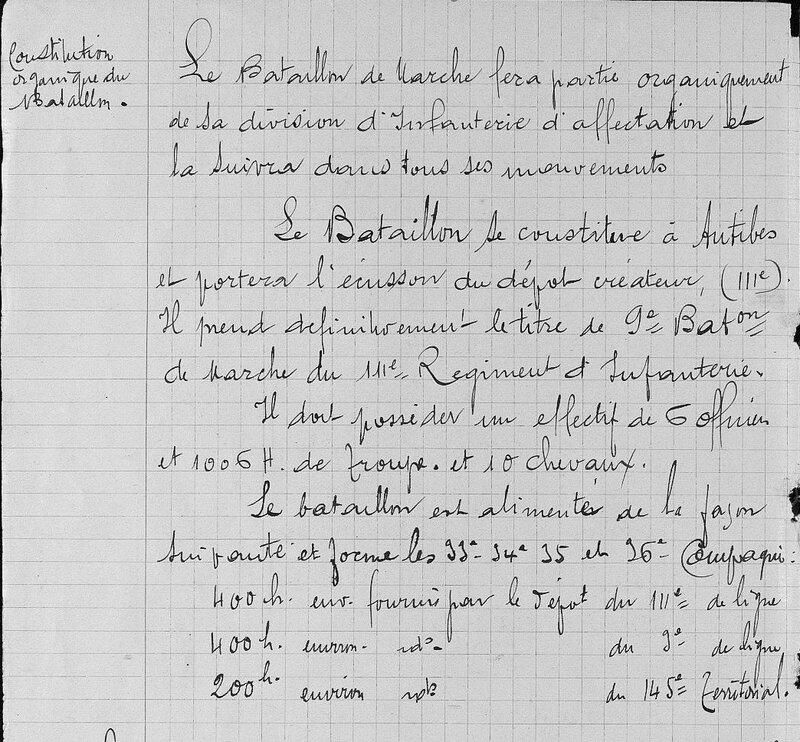 Constitution
organique du
Bataillon.
Le Bataillon de Marche fera partie organiquement
de sa division d'Infanterie d'affectation et
la suivra dans tous ses mouvements
Le Bataillon se constitue à Antibes
et portera l'écusson du dépot créateur, (111e).
Il prend definitivement le titre de 9e Baton
de Marche du 111e Regiment d'Infanterie.
Il doit posséder un effectif de 6 officiers
et 1006 H. de Troupe. et 10 chevaux.
Le bataillon est alimenté de la façon
suivante et forme les 33e 34e 35 et 36e Compagnie:
400 h. env. fournis par le Dépôt du 111e de ligne
400 h. environ - do - du 9e de ligne
200 h. environ do du 145e Territorial.